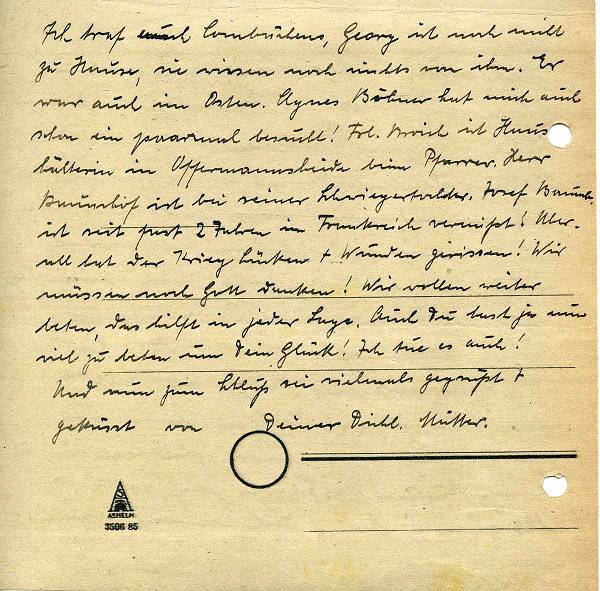 Ich traf auch Combüchens, Georg ist noch nicht
zu Hause, sie wissen noch nichts von ihm. Er
war auch im Osten. Agnes Böhner hat mich auch
schon ein paarmal besucht! Frl. Broich ist Haus
hälterin in Offermannsheide beim Pfarrer. Herr
ist bei seiner Schwiegertochter. Josef
ist seit fast 2 Jahren in Frankreich vermißt! Über-
all hat der Krieg Lücken + Wunden gerissen! Wir
müssen noch Gott danken! Wir wollen weiter
beten, das hilft in jeder Lage. Auch Du hast ja nun
viel zu beten um Dein Glück! Ich tue es auch!
Und nun zum Schluß sei vielmals gegrüßt +
geküsst von Deiner Mutter.
ASHELM
3506 85